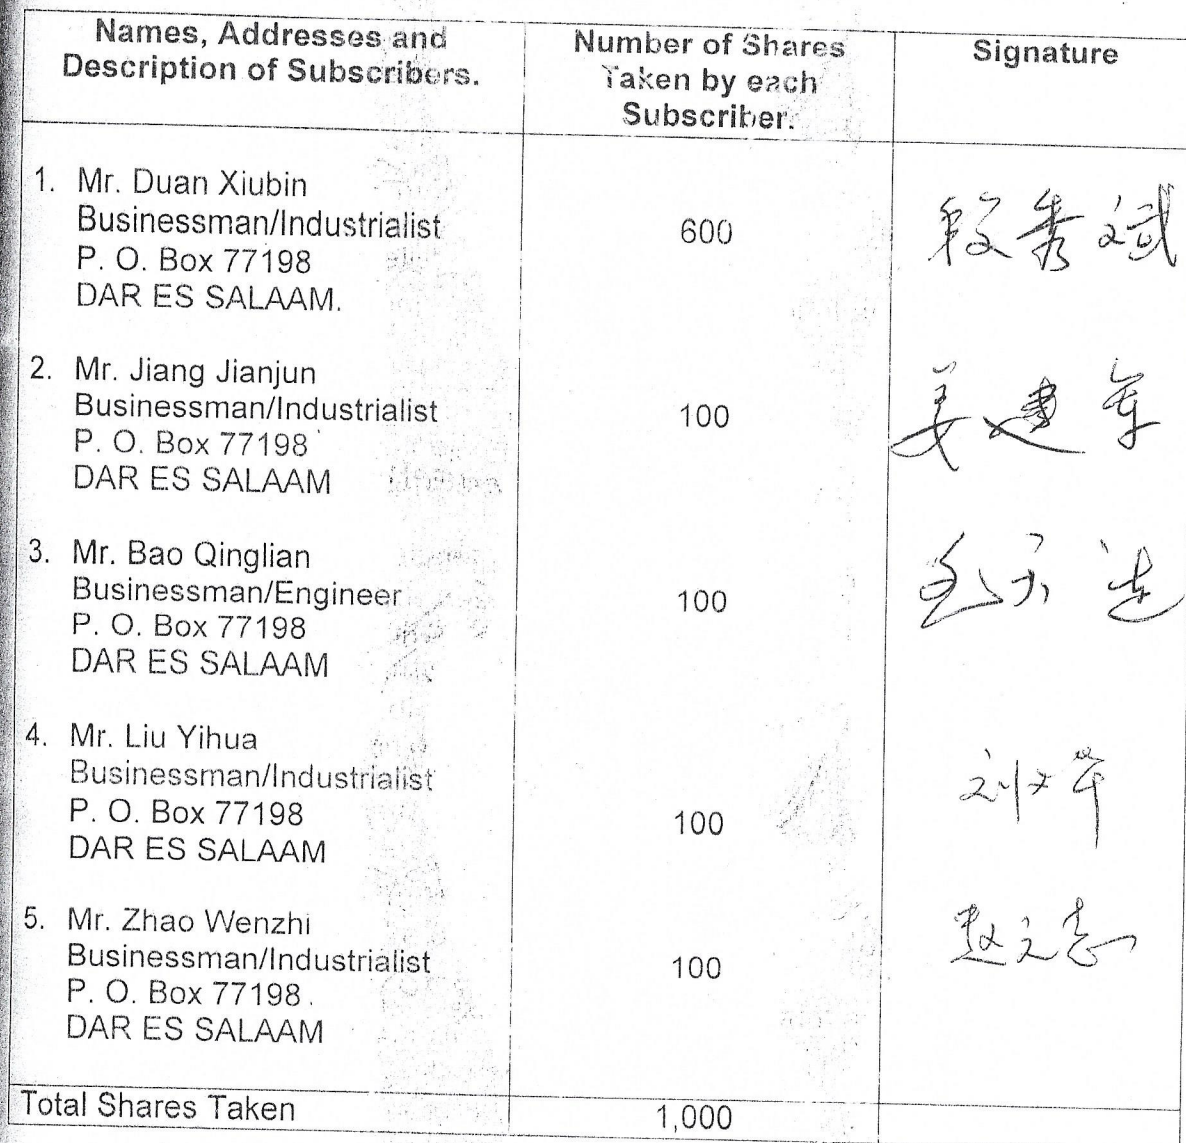 Names, Addresses and
Description of Subscribers.
Number of Shares
Taken by each
Subscriber.
Signature
1. Mr. Duan Xiubin
Businessman/Industrialist
P. O. Box 77198
DAR ES SALAAM.
600
段秀斌
2. Mr. Jiang Jianjun
Businessman/Industrialist
P. O. Box 77198
DAR ES SALAAM
100
姜建军
3. Mr. Bao Qinglian
Businessman/Engineer
P. O. Box 77198
DAR ES SALAAM
100
4. Mr. Liu Yihua
Businessman/Industrialist
P. O. Box 77198
DAR ES SALAAM
100
刘义华
5. Mr. Zhao Wenzhi
Businessman/Industrialist
P. O. Box 77198
DAR ES SALAAM
100
赵文志
Total Shares Taken
1,000